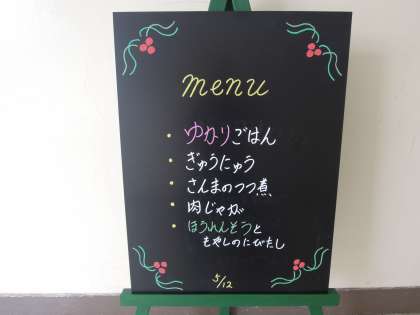 menu
・ゆかりごはん
・ぎゅうにゅう
・さんまのつつ煮
・肉じゃが
・ほうれんそうと
もやしのにびたし
5/12